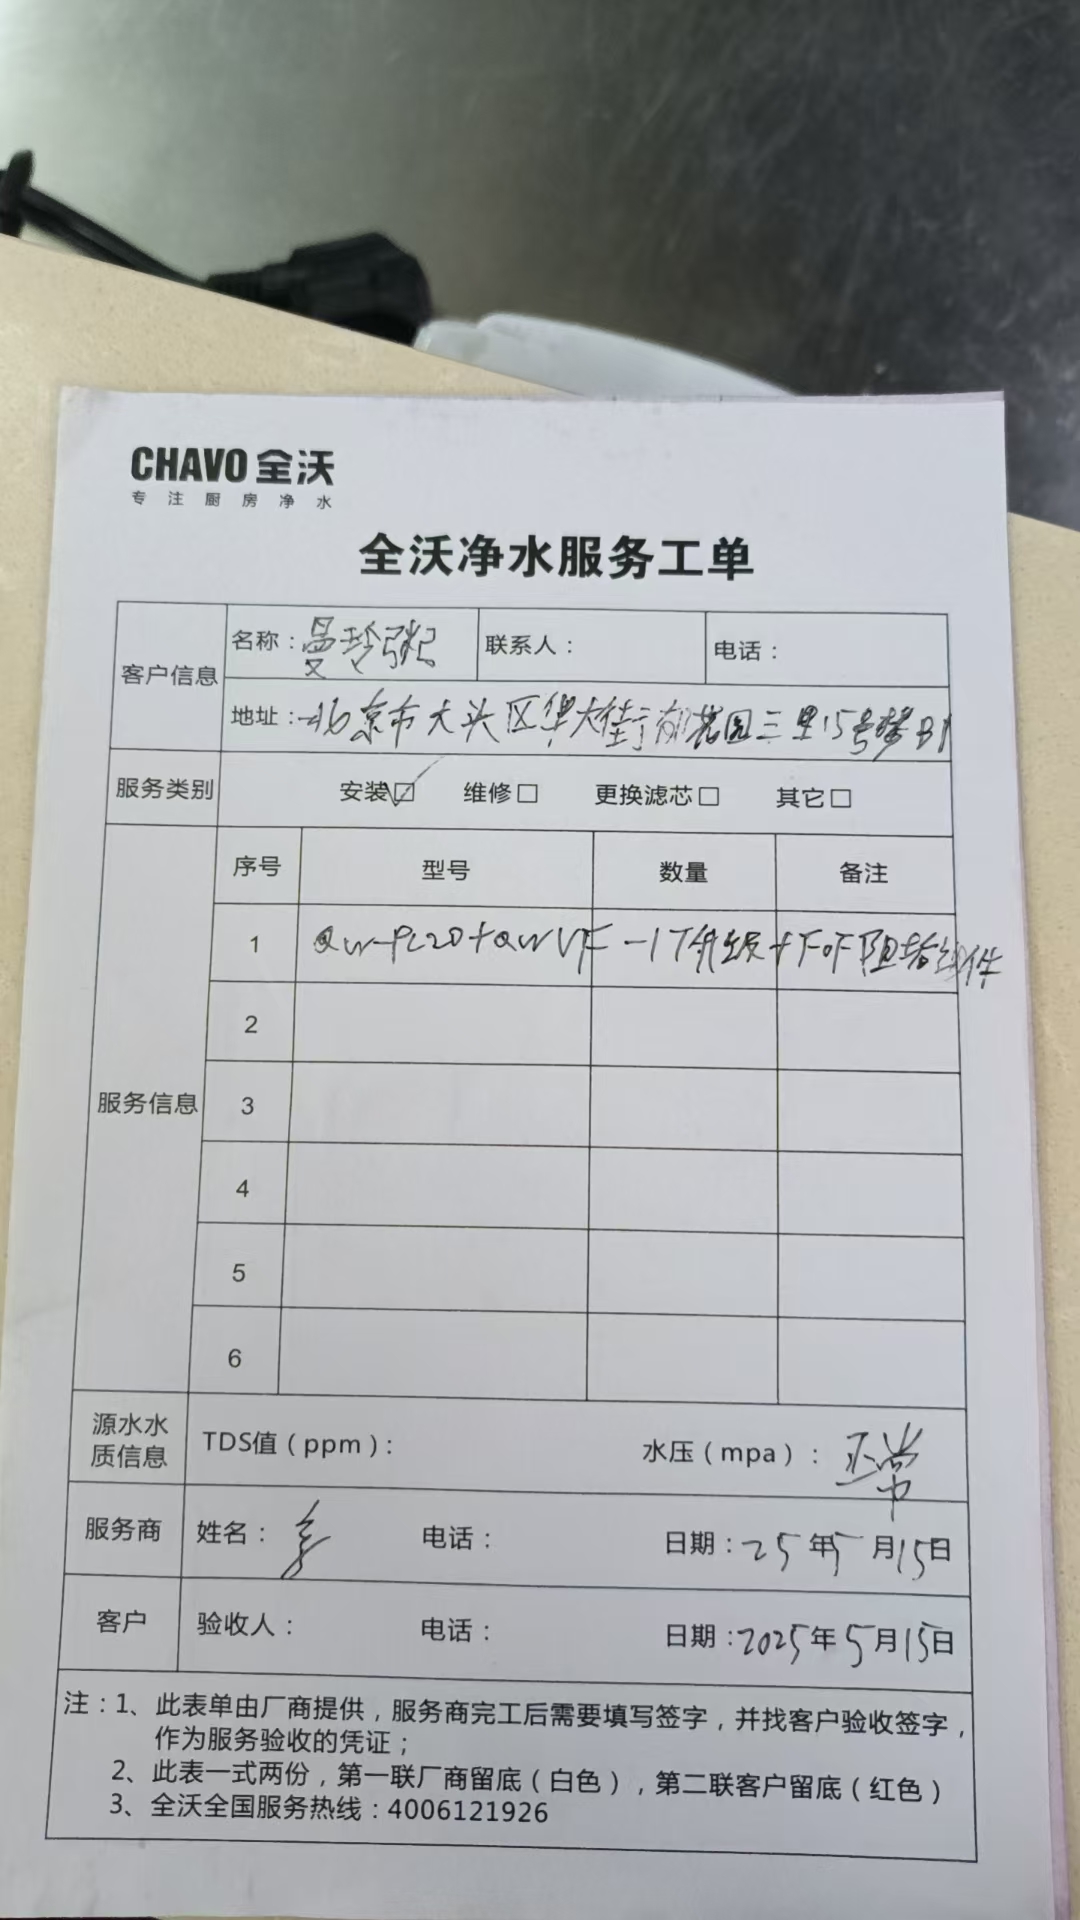 CHAVO 全沃
专注厨房净水
全沃净水服务工单
客户信息
名称：曼玲粥 联系人： 电话：
地址：北京市大兴区 街 花园三里15号楼B1
服务类别 安装☑ 维修□ 更换滤芯□ 其它□
服务信息
序号 型号 数量 备注
1 QW-PC20+QWUF-1T升级+FOF阻垢组件
2
3
4
5
6
源水水质信息 TDS值（ppm）： 水压（mpa）：正常
服务商 姓名： 电话： 日期：25年5月15日
客户 验收人： 电话： 日期：2025年5月15日
注：1、此表单由厂商提供，服务商完工后需要填写签字，并找客户验收签字，
作为服务验收的凭证；
2、此表一式两份，第一联厂商留底（白色），第二联客户留底（红色）
3、全沃全国服务热线：4006121926